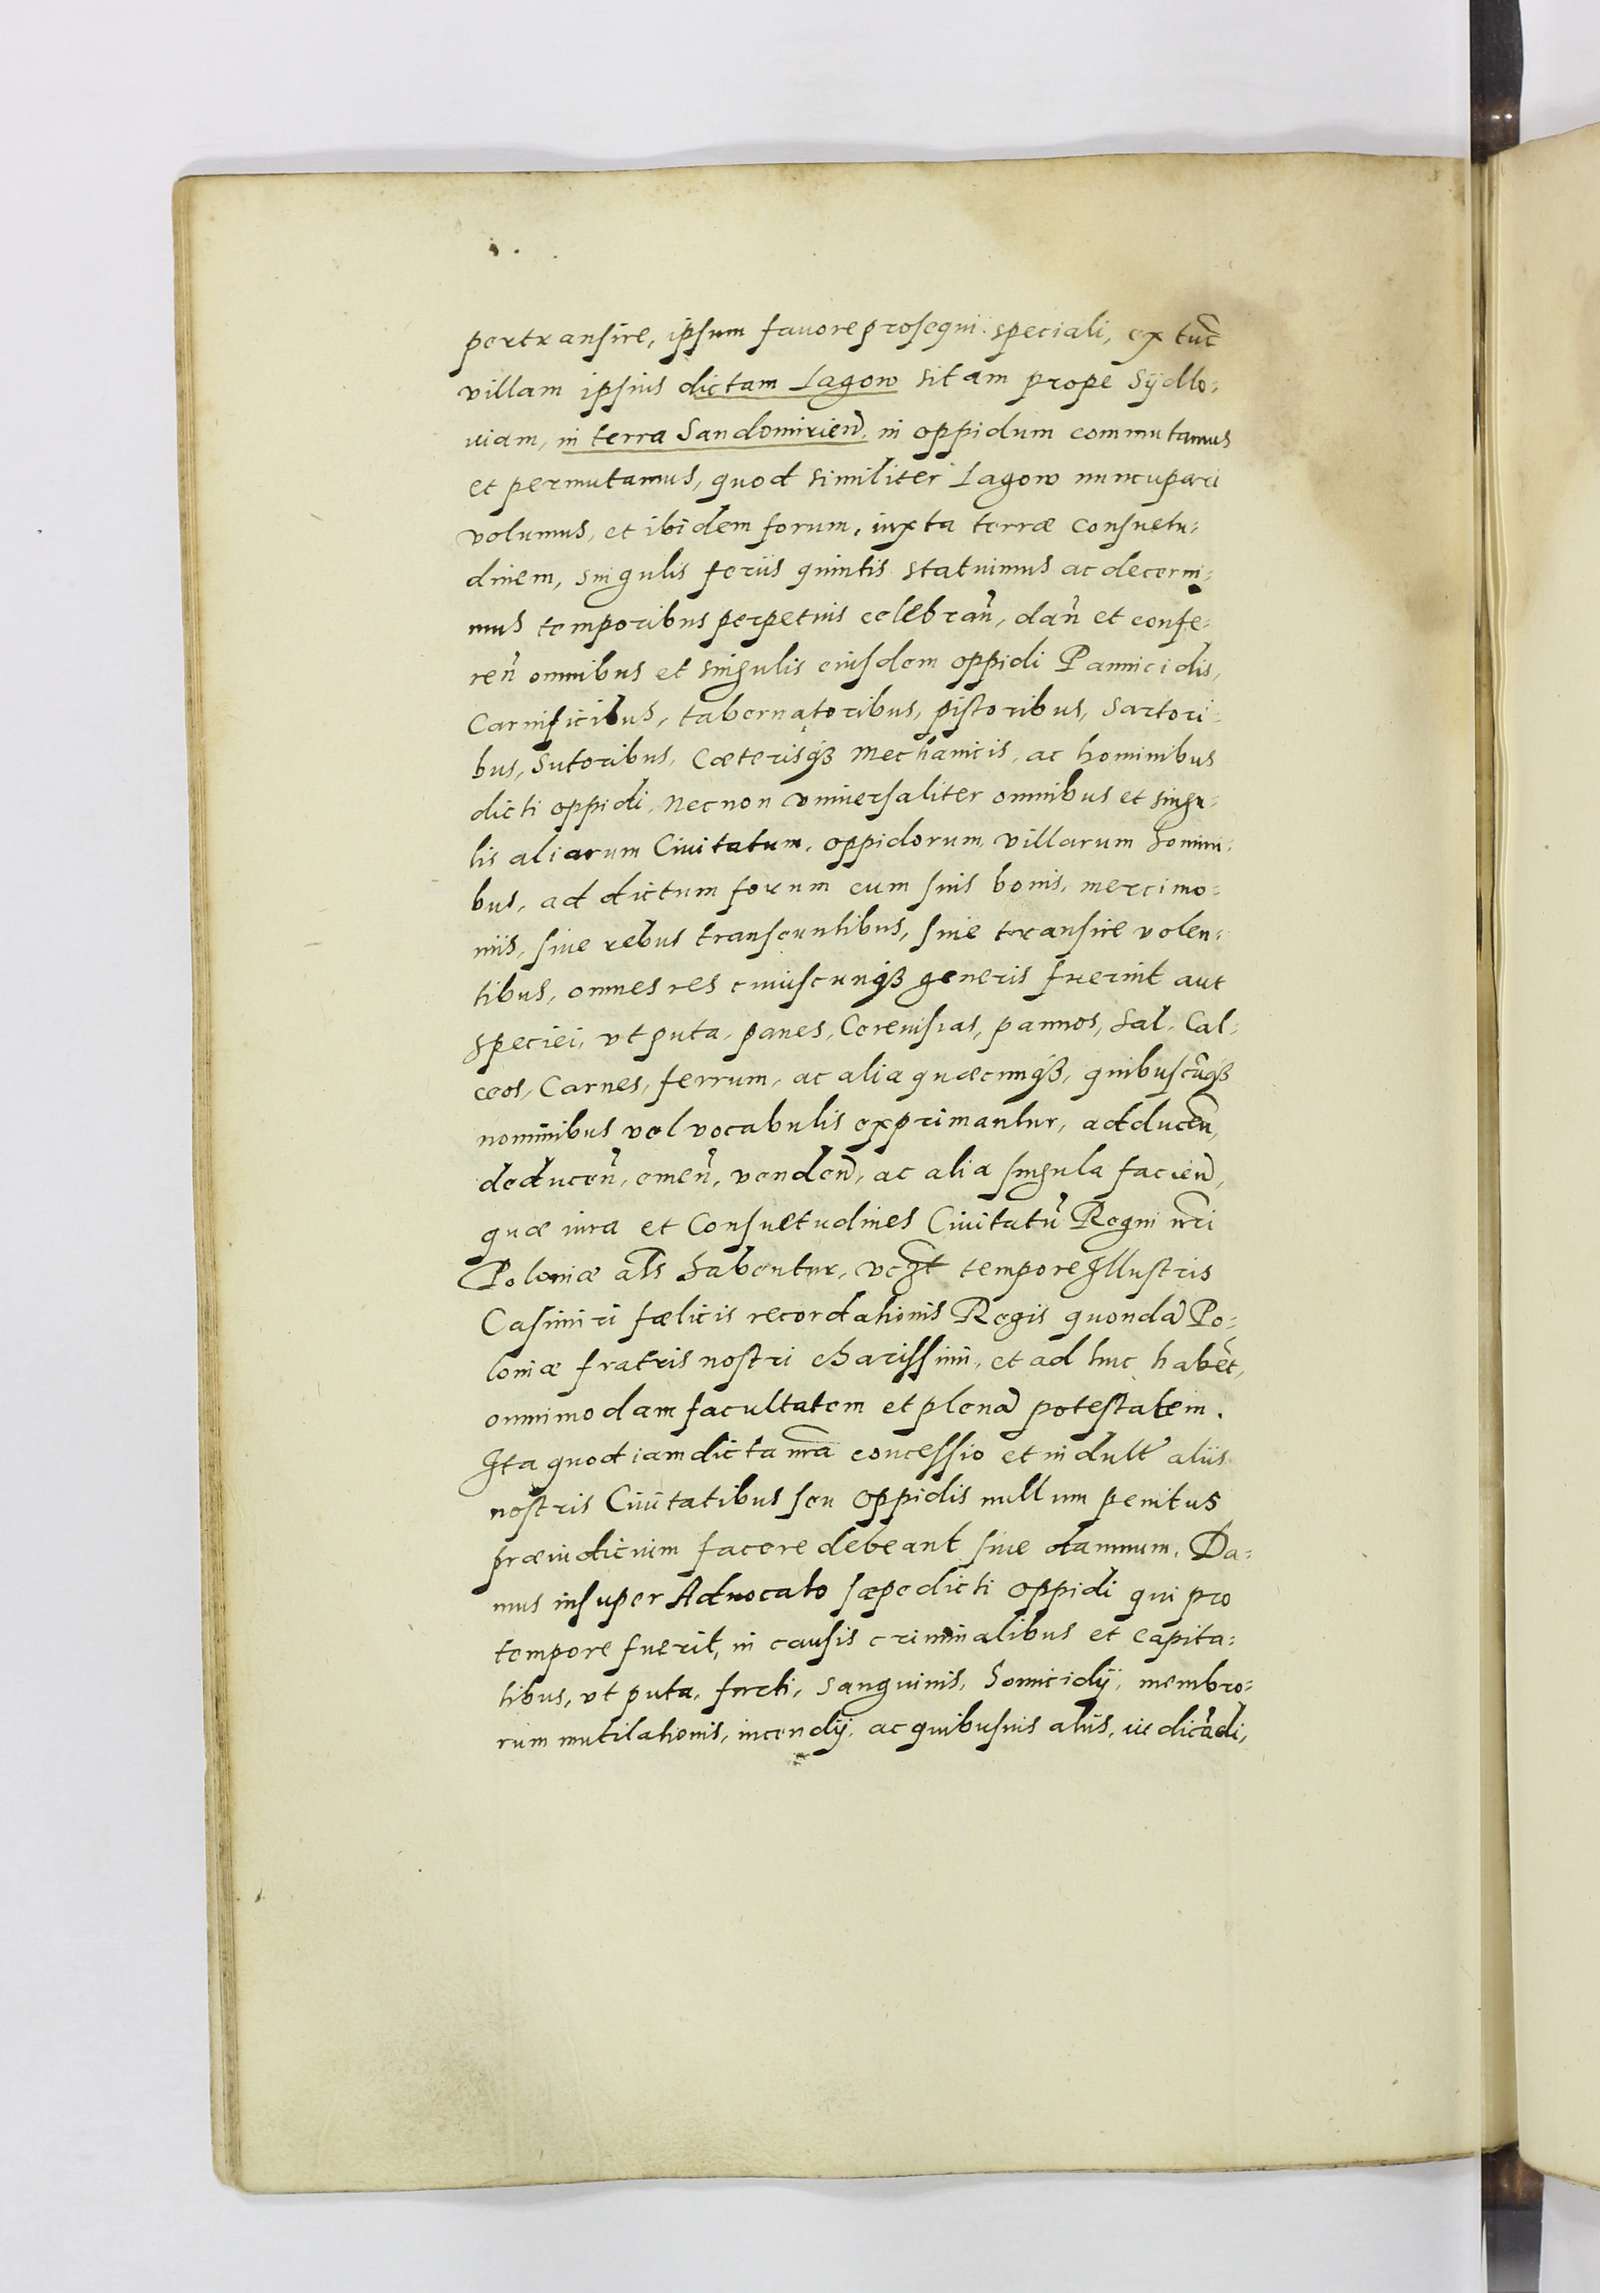 pertransire, ipsum fauore prosequi speciali, ex tuc̃
villam ipsius dictam Lagow sitam prope Sÿdlo=
uiam, in terra Sandomirien̄. in oppidum commutamus
et permutamus, quod similiter Lagow nuncupari
volumus, et ibidem forum, iuxta terræ consuetu=
dinem, singulis feriis quintis statuimus ac decerni=
mus temporibus perpetuis celebran̄, dan̄ et confe=
ren̄ omnibus et singulis eiusdem oppidi Pannicidis,
Carnificibus, tabernatoribus, pistoribus, Sartori=
bus, Sutoribus, Cæterisqȝ Mechanicis, ac hominibus
dicti oppidi, Necnon vniuersaliter omnibus et singu=
lis aliarum Ciuitatum, oppidorum, villarum homini=
bus, ad dictum forum cum suis bonis, mercimo=
niis, siue rebus transeuntibus, siue transire volen=
tibus, omnes res cuiuscunqȝ generis fuerint aut
speciei, vt puta, panes, Coreuisias, pannos, Sal, Cal=
ceos, Carnes, ferrum, ac alia quæcunqȝ, quibuscũqȝ
nominibus vel vocabulis exprimantur, adducen̄,
deducen̄, emen̄, venden̄, ac alia singula facien̄,
quæ iura et Consuetudines Ciuitatũ Regni nr̃i
Poloniæ al̃s habentur, vel̃t tempore Illustris
Casimiri fælicis recordationis Regis quondã Po=
loniæ fratris nostri charissimi, et ad huc habẽt,
omnimodam facultatem et plenã potestatem.
Ita quod iam dicta nr̃a concessio et indult̃ aliis
nostris Ciuitatibus seu oppidis nullum penitus
præiudicium facere debeant siue damnum. Da=
mus insuper Aduocato sæpedicti oppidi qui pro
tempore fuerit, in causis criminalibus et capita=
libus, vt puta, furti, sanguinis, homicidÿ, membro=
rum mutilationis, incendÿ, ac quibusuis aliis, iudicãdi,